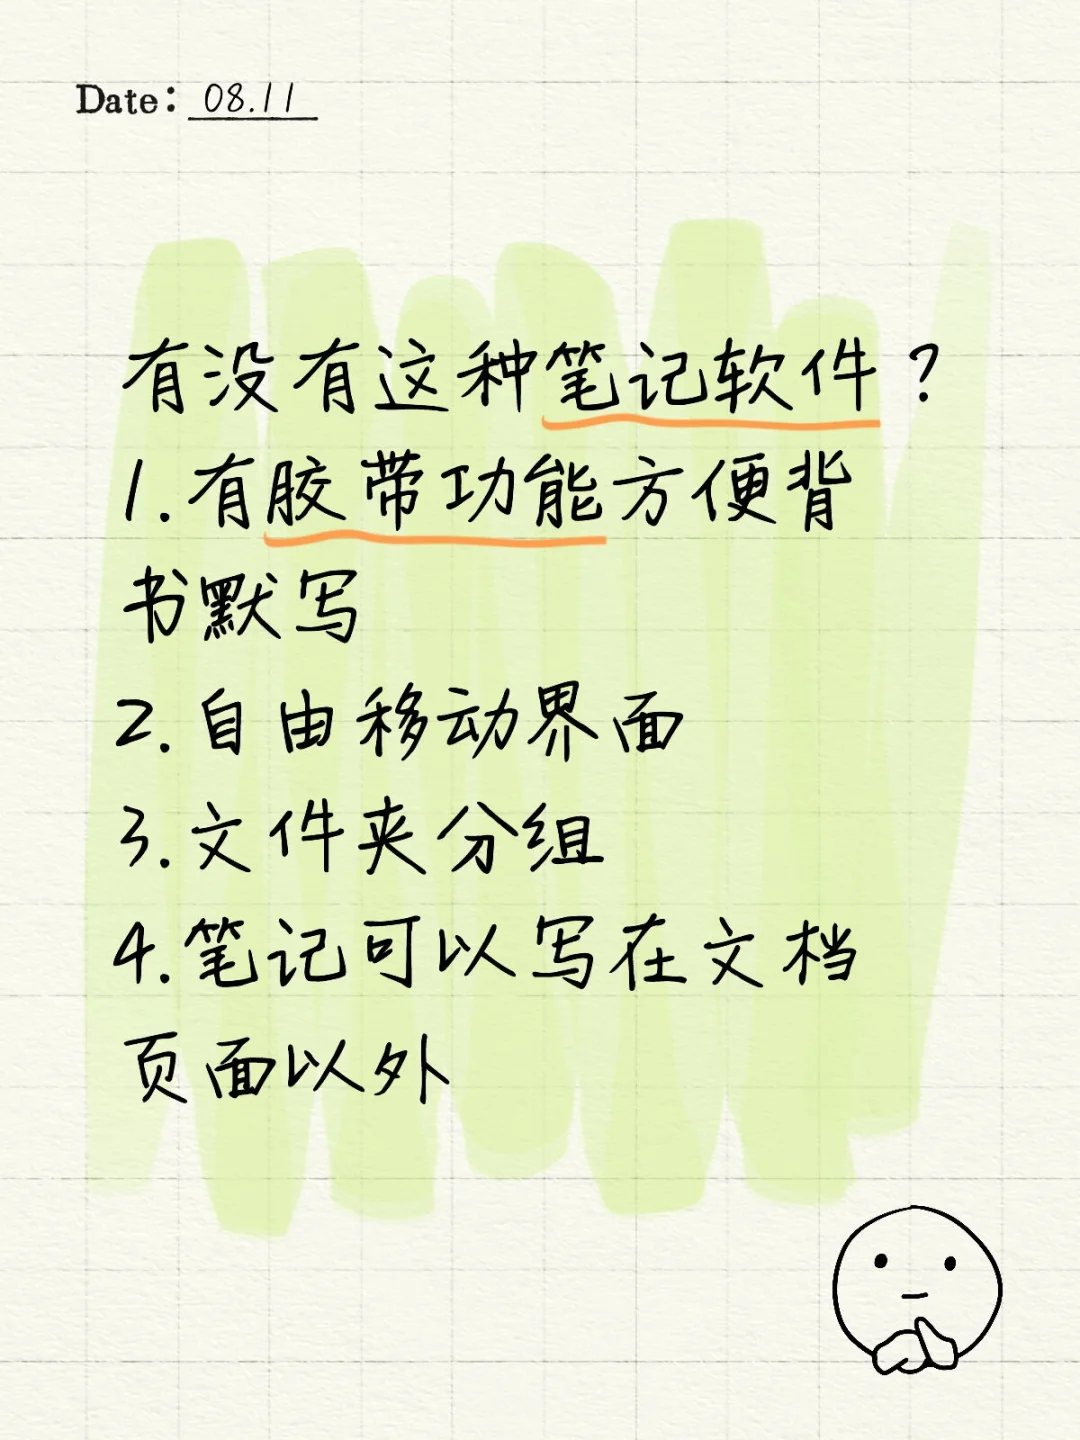 Date: 08.11
有没有这种笔记软件?
1.有胶带功能方便背
书默写
2.自由移动界面
3.文件夹分组
4.笔记可以写在文档
页面以外